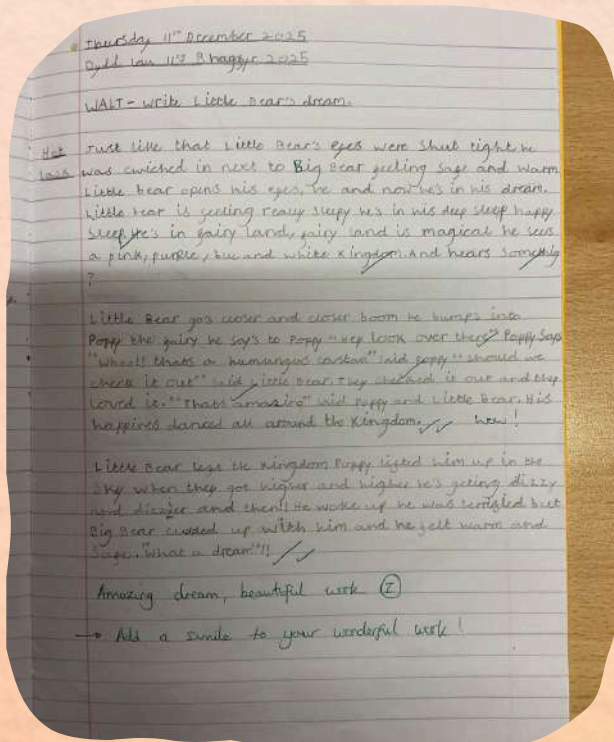 Thursday 11th December 2025
Dydd Iau 11eg Rhagfyr 2025
WALT - Write Little Bear's dream.
Hot Task
Just like that Little Bear's eyes were shut tight he
was cwiched in next to Big Bear feeling safe and warm
Little bear opens his eyes, he and now he's in his dream.
Little bear is feeling really sleepy he's in his deep sleep happy
sleep he's in fairy land, fairy land is magical he sees
a pink, purple, blue and white Kingdom. And hears something
?
Little Bear gos closer and closer boom he bumps into
Poppy the fairy he say's to Poppy "hey look over there" Poppy Says
thats a humungus said poppy "should we
check it out" said Little Bear. They checked it out and they
loved it. "Thats amazing" said Poppy and Little Bear. His
happines danced all around the Kingdom. !
Little Bear left the Kingdom Poppy lifted him up in the
sky when they got higher and higher he's geting dizzy
and dizzier and then!! He woke up he was terrified but
Big Bear cudded up with him and he felt warm and
safe. "What a dream"!!
Amazing dream, beautiful work
→ Add a simile to your wonderful work!